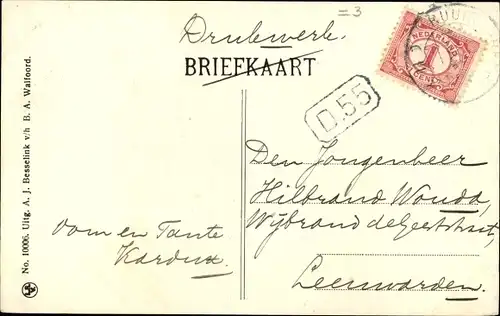 =3
Drukwerk.
BRIEFKAART
NEDERLAND
1
CENT
D.55
Den Jongenheer
Hilbrand Wouda,
Wijbrand de Geeststraat,
Leeuwarden.
Oom en Tante
Kardux.
No. 10006. Uitg. A. J. Besselink v/h B. A. Walfoord.